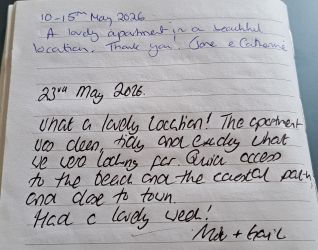 10-15th May 2026
A lovely apartment in a beautiful
location. Thank you! Jane & Catherine
23rd May 2026.
What a lovely location! The apartment
was clean, tidy and exactly what
we were looking for. Quick access
to the beach and the coastal path,
and close to town.
Had a lovely week!
+ Gail